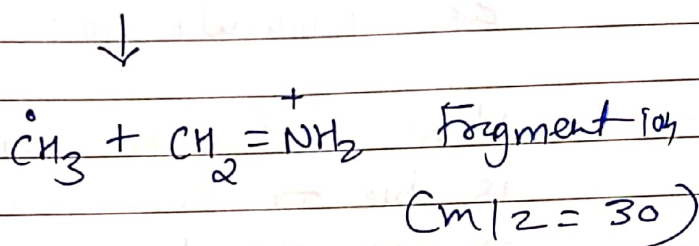 ↓
ĊH₃ + CH₂ = N⁺H₂ Fragment ion
(m/z = 30)